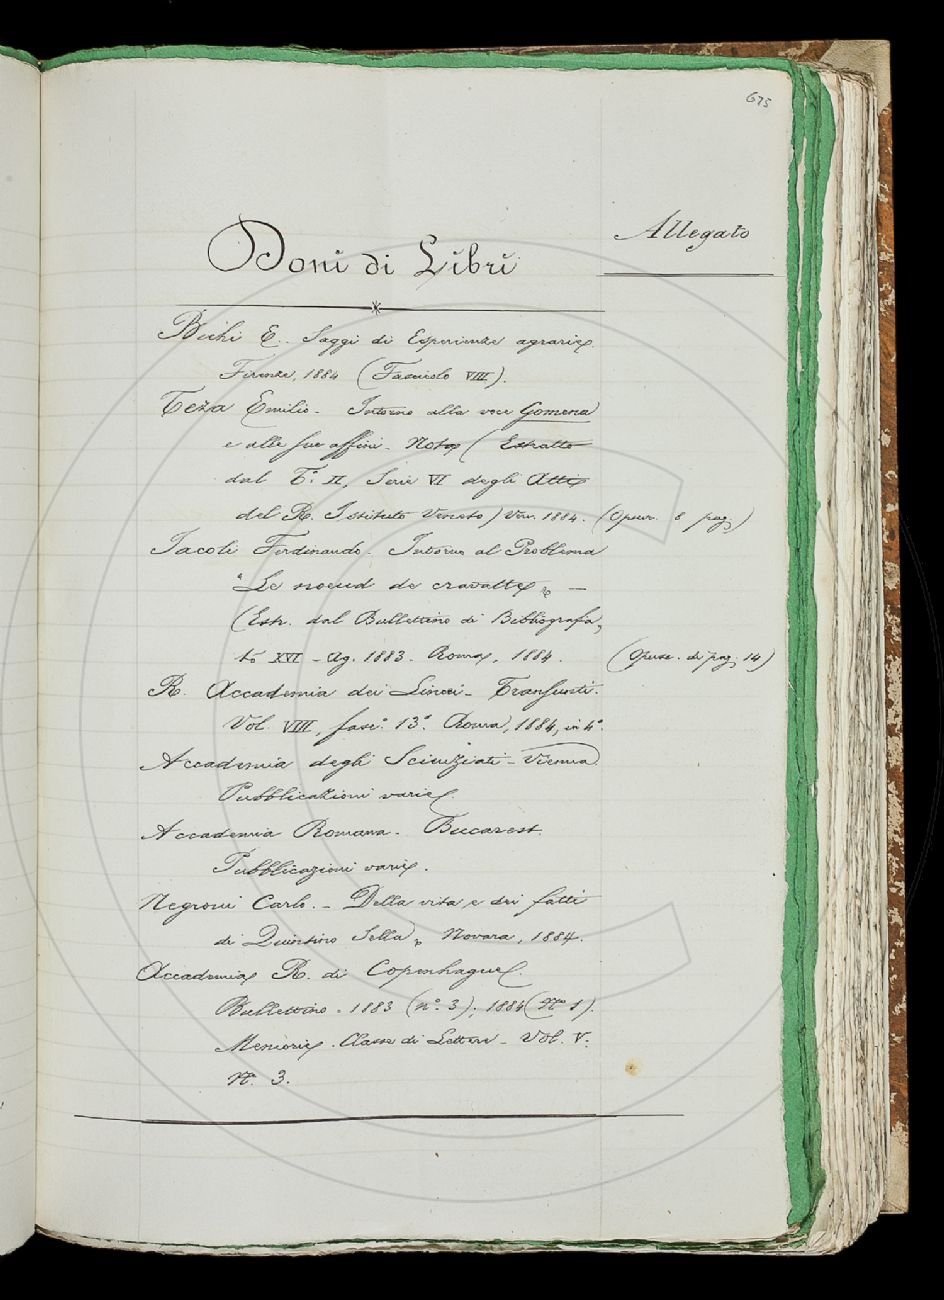 675
Allegato
Doni di Libri
Bechi E. - Saggi di Esperienze agrarie.
Firenze, 1884 (Fascicolo VIII).
Teza Emilio - Intorno alla voce Gomena
e alle sue affini - Nota (Estratto
dal T.º II, Serie VI degli Atti
del R. Istituto Veneto) Ven. 1884. (Opusc. 8 pag.)
Jacoli Ferdinando - Intorno al Problema
"Le noeud de cravatte" -
(Estr. dal Bullettino di Bibliografa,
to XVI - Ag. 1883. Roma, 1884. (Opusc. di pag. 14)
R. Accademia dei Lincei - Transunti.
Vol. VIII, fasc.º 13.º Roma, 1884, in 4º.
Accademia degli Scienziati - Vienna
Pubblicazioni varie.
Accademia Romana - Bucarest.
Pubblicazioni varie.
Negroni Carlo. - Della vita e dei fatti
di Quintino Sella, Novara, 1884.
Accademia R. di Copenhague.
Bullettino - 1883 (nº 3); 1884 (Nº 1).
Memorie. Classe di Lettere - Vol. V.
Nº 3.